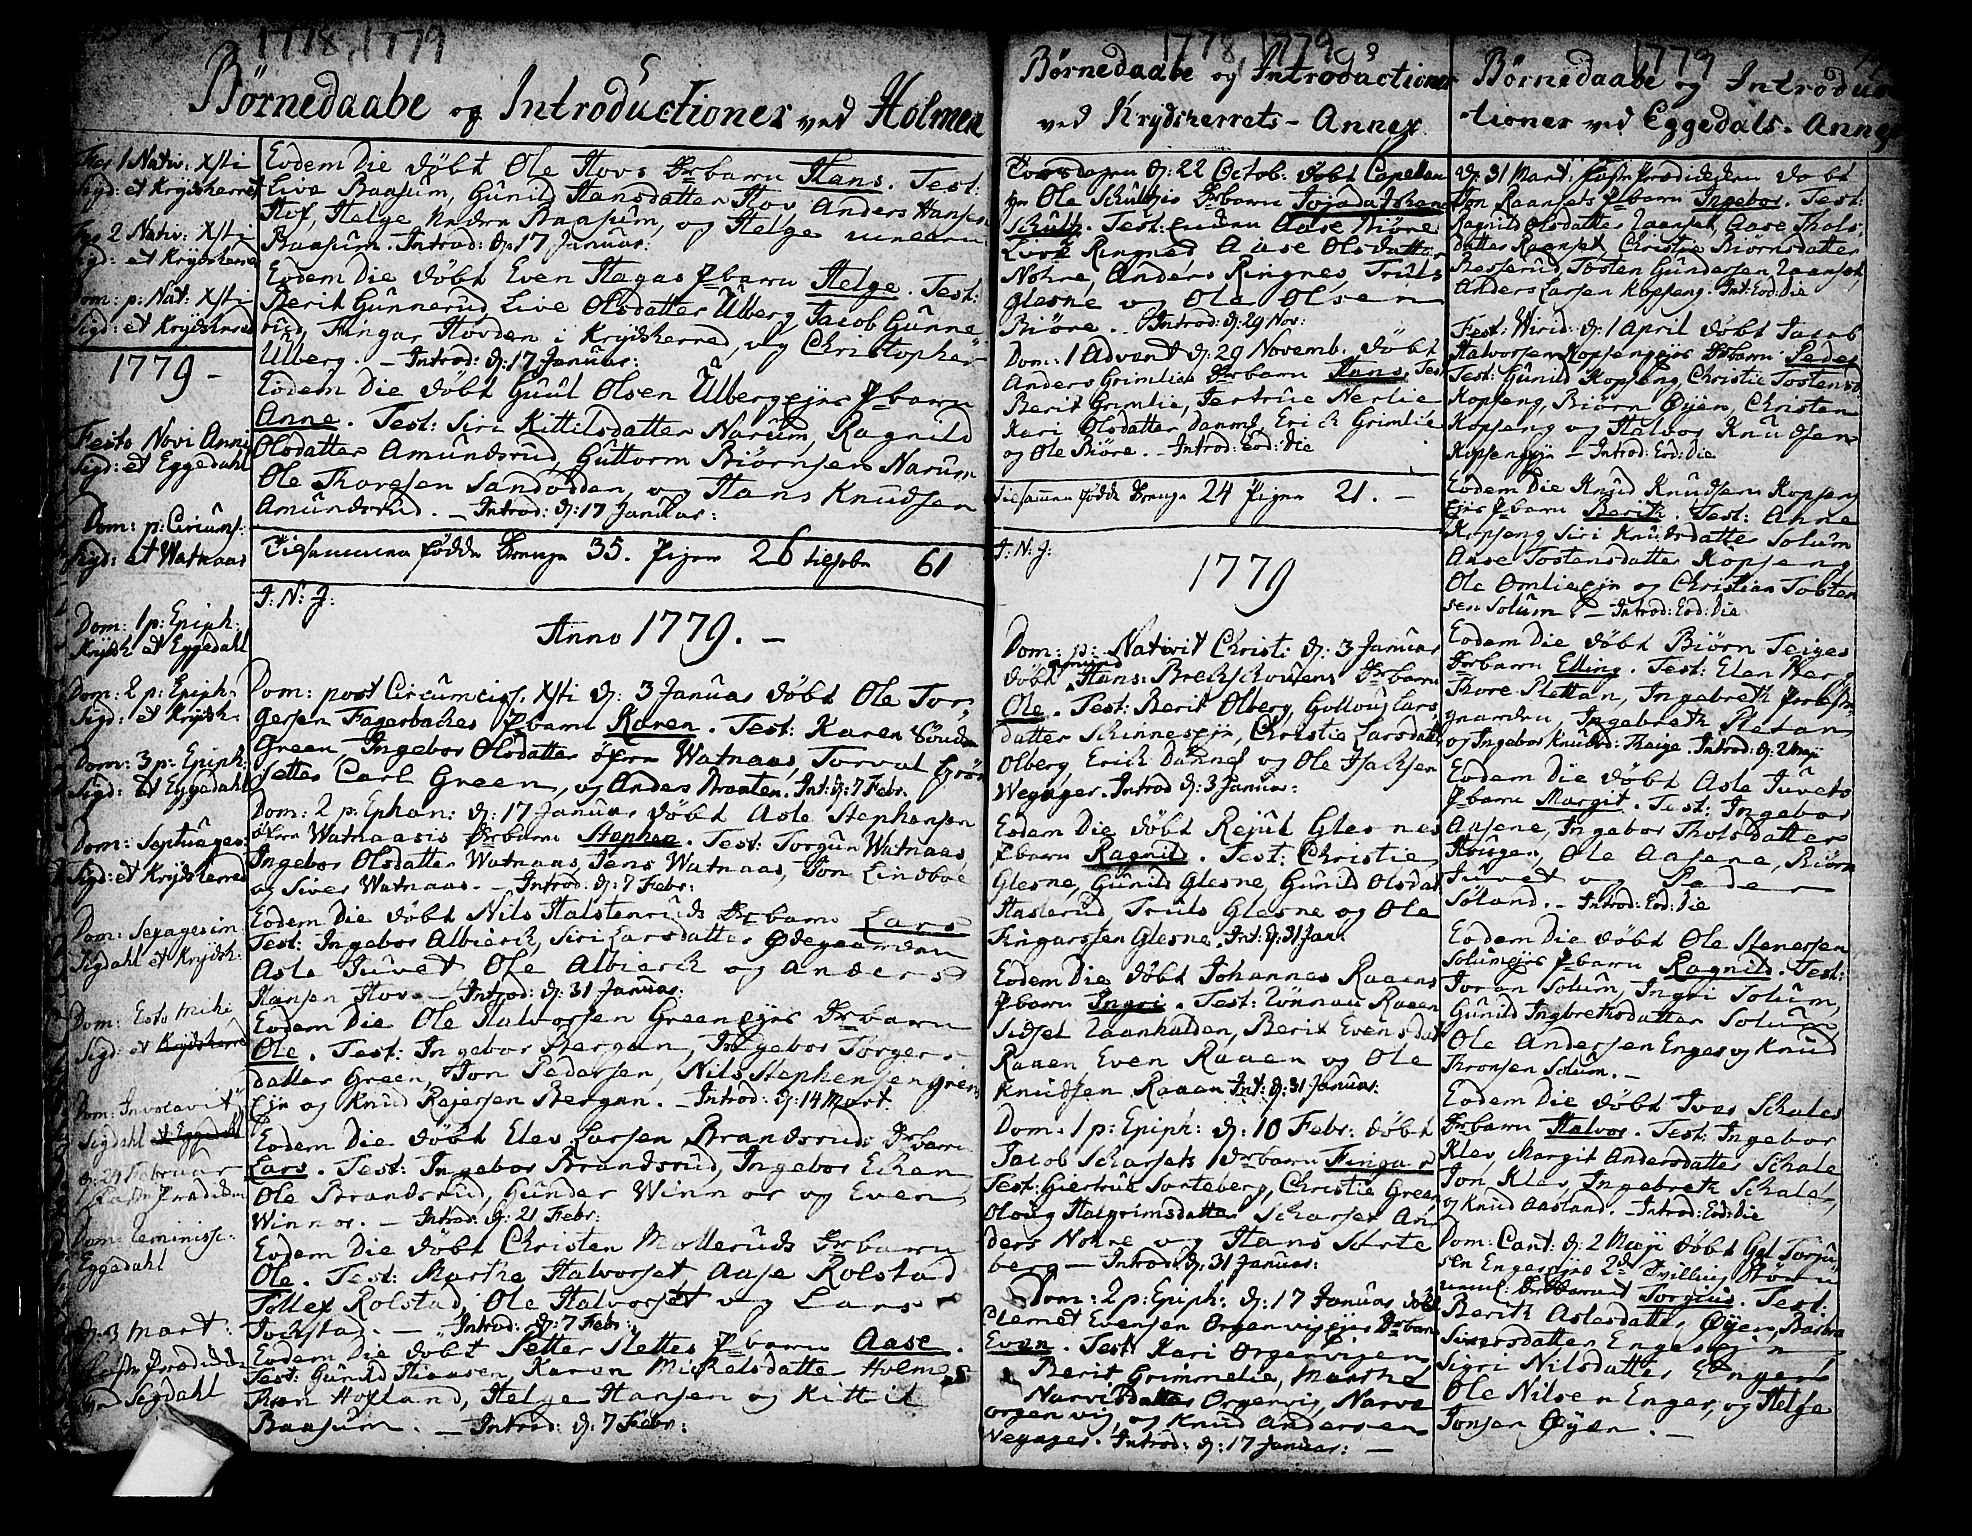 1778, 1779
Børnedaabe og Introductioner ved Holmen
Fer 1 Nativ: Xsti
Sigd: et Krydsherret
Fer 2 Nativ: Xsti
Sigd: et Krydsherre
Dom: p: Nat: Xsti
Sigd: et Krydsherred
1779 -
Festo Novi Anni
Sigd: et Eggedahl
Dom: p: Circums:
Sigd: et Watnaas
Dom: 1 p: Epiph:
Krydsh et Eggedahl
Dom: 2 p: Epiph:
Sigd: et Krydsh:
Dom: 3 p: Epiph:
Sigd: et Eggedahl
Dom: Septuages:
Sigd: et Krydsherred
Dom: Sexagesim:
Sigdahl et Krydsh:
Dom: Esto mihi
Sigd: et Krydsherre
Dom: Invocavit
Sigdahl et Eggedahl
d: 24 Februar
Dom: Reminisc:
Eggedahl
d: 3 Mart:
Sigdahl
Eodem Die døbt Ole Hovs Drbarn Hans. Test:
Live Baasum, Gunild Hansdatter Hov Anders Hansen
Hof, Helge Nedre Baasum, og Helge
Baasum. Introd: d: 17 Januar:
Eodem Die døbt Even Hagas Pbarn Helge. Test:
Berit Gunnerud, Live Olsdatter Ulberg, Jacob Gunne
rud, Fingar Hovden i Krydsherred, og Christopher
Ulberg. - Introd: d: 17 Januar:
Eodem Die døbt Guul Olsen Ulbergejes Pbarn
Anne. Test: Siri Kittilsdatter Narum, Ragnild
Olsdatter Amundsrud, Guttorm Biørnsen Narum
Ole Thoresen Sandodden, og Hans Knudsen
Amundsrud. - Introd: d: 17 Januar:
Tilsammen fødde Drenge 35. Piger 26 tilsobr 61
I: N: J:
Anno 1779. -
Dom: post Circumcis: Xsti d: 3 Januar døbt Ole Tor:
gersen Fagerbackes Pbarn Karen. Test: Karen Søndre
Green, Ingebor Olsdatter øfre Watnaas, Torval Grøn
sette, Carl Green, og Anders Braaten. Int: d: 7 Febr.
Dom: 2 p: Ephan: d: 17 Januar døbt Asle Stephensen
øfre Watnaasis Drbarn Stephen. Test: Torgun Watnaas,
Ingebor Olsdatter Watnaas, Jens Watnaas, Jon Lindboe
og Siver Watnaas. - Introd: d: 7 Febr:
Eodem Die døbt Nils Halstenruds Drbarn Lars
Test: Ingebor Albierch, Siri Larsdatter Ødegaarden
Asle Juvet, Ole Albierch og Anders
Hansen Hov. - Introd: d: 31 Januar:
Eodem Die Ole Halvorsen Greenejes Drbarn
Ole. Test: Ingebor Bergan, Ingebor Torgers-
datter Green, Jon Pedersen, Nils Stephensen Green
Eje og Knud Reiersen Bergan. - Introd: d: 14 Mart:
Eodem Die døbt Elev Larsen Brandsruds Drbarn
Lars. Test: Ingebor Brandsrud, Ingebor Echan
Ole Brandsrud, Gunder Winnor og Even
Winnor. - Introd: d: 21 Febr:
Eodem Die døbt Christen Molleruds Drbarn
Ole. Test: Marthe Halvorset, Aase Rolstad
Tollef Rolstad, Ole Halvorset og Lars
Jochstad. - Introd: d: 7 Febr:
Eodem Die døbt Petter Slettes Pbarn Aase.
Test: Gunild Hiaasen, Karen Michelsdatte Holmes
Thron Hofland, Helge Hansen og Kittil
Baasum. - Introd: d: 7 Febr:
1778, 1779
Børnedaabe og Introductioner
ved Krydsherrets - Annex.
Torsdagen d: 22 Octob: døbt Capellan
Hr Ole Schultzis Drbarn
Schultz. Test: Aase Biøre
Live Ringnes Aase Olsdatter
Nohre, Anders Ringnes, Truls
Glesne og Ole Olsen
Biøre. - Introd: d: 29 Nov:
Dom: 1 Advent d: 29 Novemb. døbt
Anders Grimlies Drbarn Hans, Test
Berit Grimlie, Jertrue Nerlie
Kari Olsdatter Danmf, Erich Grimlie
og Ole Biøre. - Introd: Eod: Die
Tilsammen fødde Drenge 24 Piger 21. -
I: N: J:
1779
Dom: p: Nativit Christi d: 3 Januar
døbt Hans Brechschousens Drbarn
Ole. Test: Berit Olberg, Golloug Lars
datter Skinnesejr, Christie Larsdatt
Olberg Erich Dannes og Ole Isachsen
Wegager. Introd d: 3 Januar:
Eodem Die døbt Rejul Glesnes
Pbarn Ragnild. Test: Christie
Glesne, Gunild Glesne, Gunild Olsdat
Haslerud, Truls Glesne og Ole
Fingarssen Glesne. Int: d: 31 Jan:
Eodem Die døbt Johannes Raaens
Pbarn Ingri. Test: Rønnau Raaen
Sidsel Laanhalden, Berit Evensdat
Raaen, Even Raaen og Ole
Knudsen Raaen Int: d: 31 Januar:
Dom: 1 p: Epiph: d: 10 Febr: døbt
Jacob Scharsets Drbarn Fingar
Test: Giertrud Sorteberg, Christie Green
Oloug Halgrimsdatter Scharset An
ders Nohre og Hans Sorte
berg - Introd: d: 31 Januar:
Dom: 2 p: Epiph: d: 17 Januar døbt
Clemet Evensen Orgenvigejes Drbarn
Even. Test: Kari Orgenvigen
Berit Grimmelie, Marthe
Narvisdatter Orgenvig, Narve
Orgenvig, og Knud Andersen
Wegager. Introd: d: 17 Januar: -
1779
Børnedaabe og Introduc
tioner ved Eggedals - Annex
d: 31 Mart: døbt
Jon Raansets Pbarn Ingebor. Test:
Ragnild Olsdatter Raanset, Aase Thols-
datter Raanset, Christie Biørnsdatter
Besserud, Tosten Gundersen Raanset,
Anders Larsen Kopseng. Int: Eod: Die
Fest: Virid: d: 1 April døbt Jacob
Halvorsen Kopsengejes Drbarn Peder
Test: Gunild Kopseng, Christie Tostensd:
Kopseng, Biørn Øyen, Christen
Kopseng og Halvor Knudsen
Kopsengeje - Introd: Eod: Die
Eodem Die Knud Knudsen Kopseng
Ejes Pbarn Berith. Test: Anne
Kopseng Siri Knudsdatter Solum
Aase Tostensdatter Kopseng
Ole Omlieeje og Christian Tosten
sen Solum - Introd: Eod: Die
Eodem Die døbt Biørn Teiges
Drbarn Elling. Test: Elen Berg
Thore Plettan, Ingebreth
Ingebreth Pletan
og Ingebor Knudsd: Theige. Introd: d: 2 Maji
Eodem Die døbt Asle Juvets
Pbarn Margit. Test: Ingebor
Aasene, Ingebor Tholsdatter
Haugen, Ole Aasene, Biørn
Juvet og Peder
Søland. - Introd: Eod: Die
Eodem Die døbt Ole Stenersen
Solumejes Pbarn Ragnild. Test:
Joran Solum, Ingri Solum,
Gunild Ingbrethsdatter Solum
Ole Andersen Enger og Knud
Thronsen Solum. -
Eodem Die døbt Iver Schales
Drbarn Halvor. Test: Ingebor
Klev, Margit Andersdatter Schale
Jon Klev, Ingebreth Schale,
og Knud Aasland. - Introd: Eod: Die
Dom: Cant: d: 2 Maji døbt Gul Torju-
sen Engerejes 2de Tvilling Børn
Drbarnet Torgius. Test:
Berith Aslesdatter Øyen, Barbra
Siversdatter Engereje
Sigri Nilsdatter Enger
Ole Nilsen Enger, og Helge
Jonsen Øyen. -